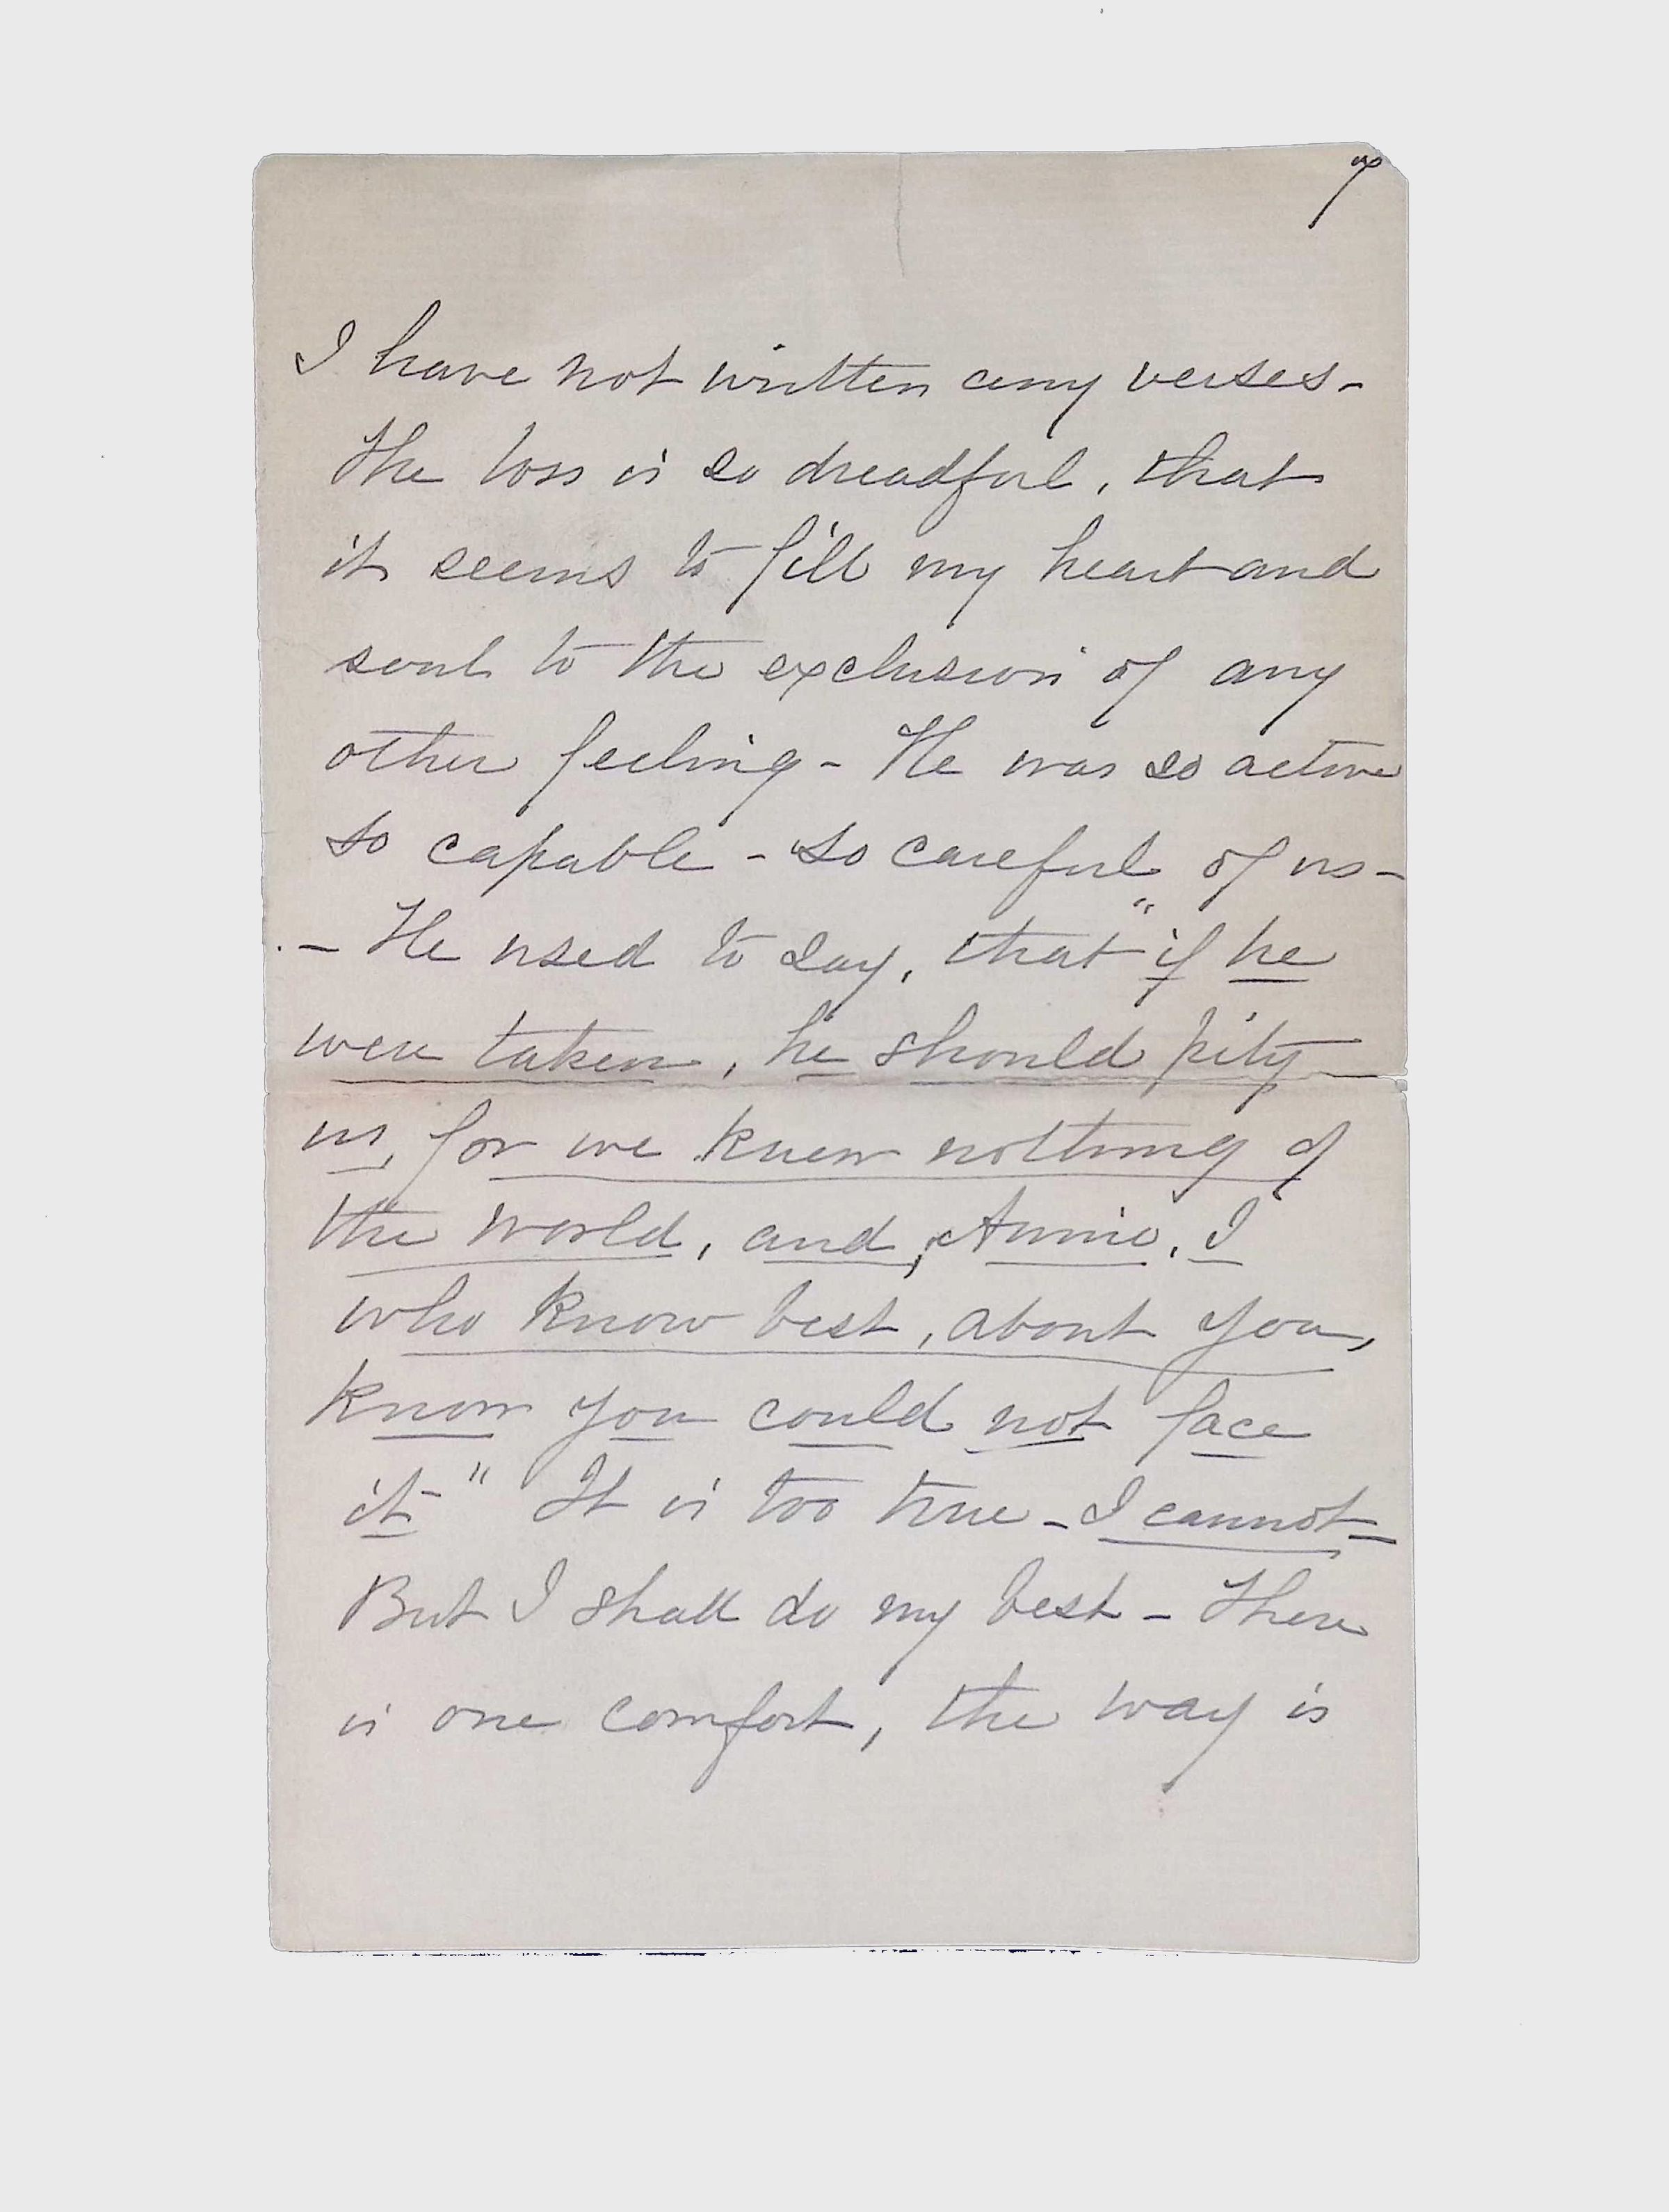 I have not written any verses -
The loss is so dreadful, that
it seems to fill my heart and
soul to the exclusion of any
other feeling - He was so active
so capable - so careful of us -
- He used to say, that "if he
were taken, he should pity
us, for we knew nothing of
the world, and, Annie, I
who know best, about you,
know you could not face
it" It is too true - I cannot -
But I shall do my best - There
is one comfort, the way is